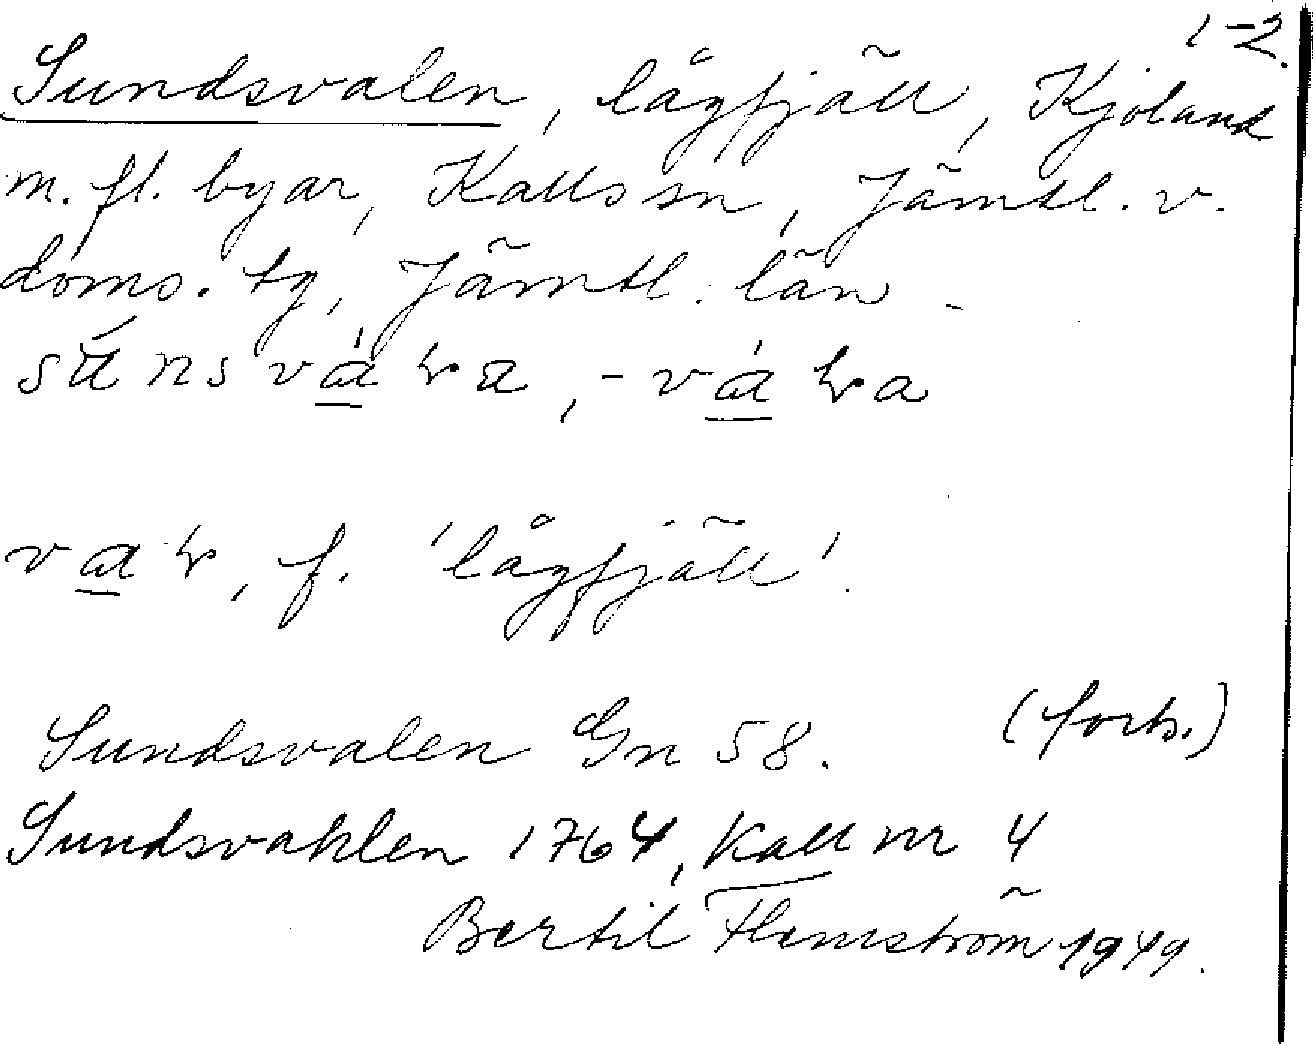 1-2.
Sundsvalen, lågfjäll, Kjoland
m. fl. byar, Kalls sn, Jämtl. v.
doms. tg, Jämtl. län.
va, f. 'lågfjäll'.
Sundsvalen Gn 58. (forts.)
Sundsvahlen 1764, Kall nr 4
Bertil Flemström 1949.